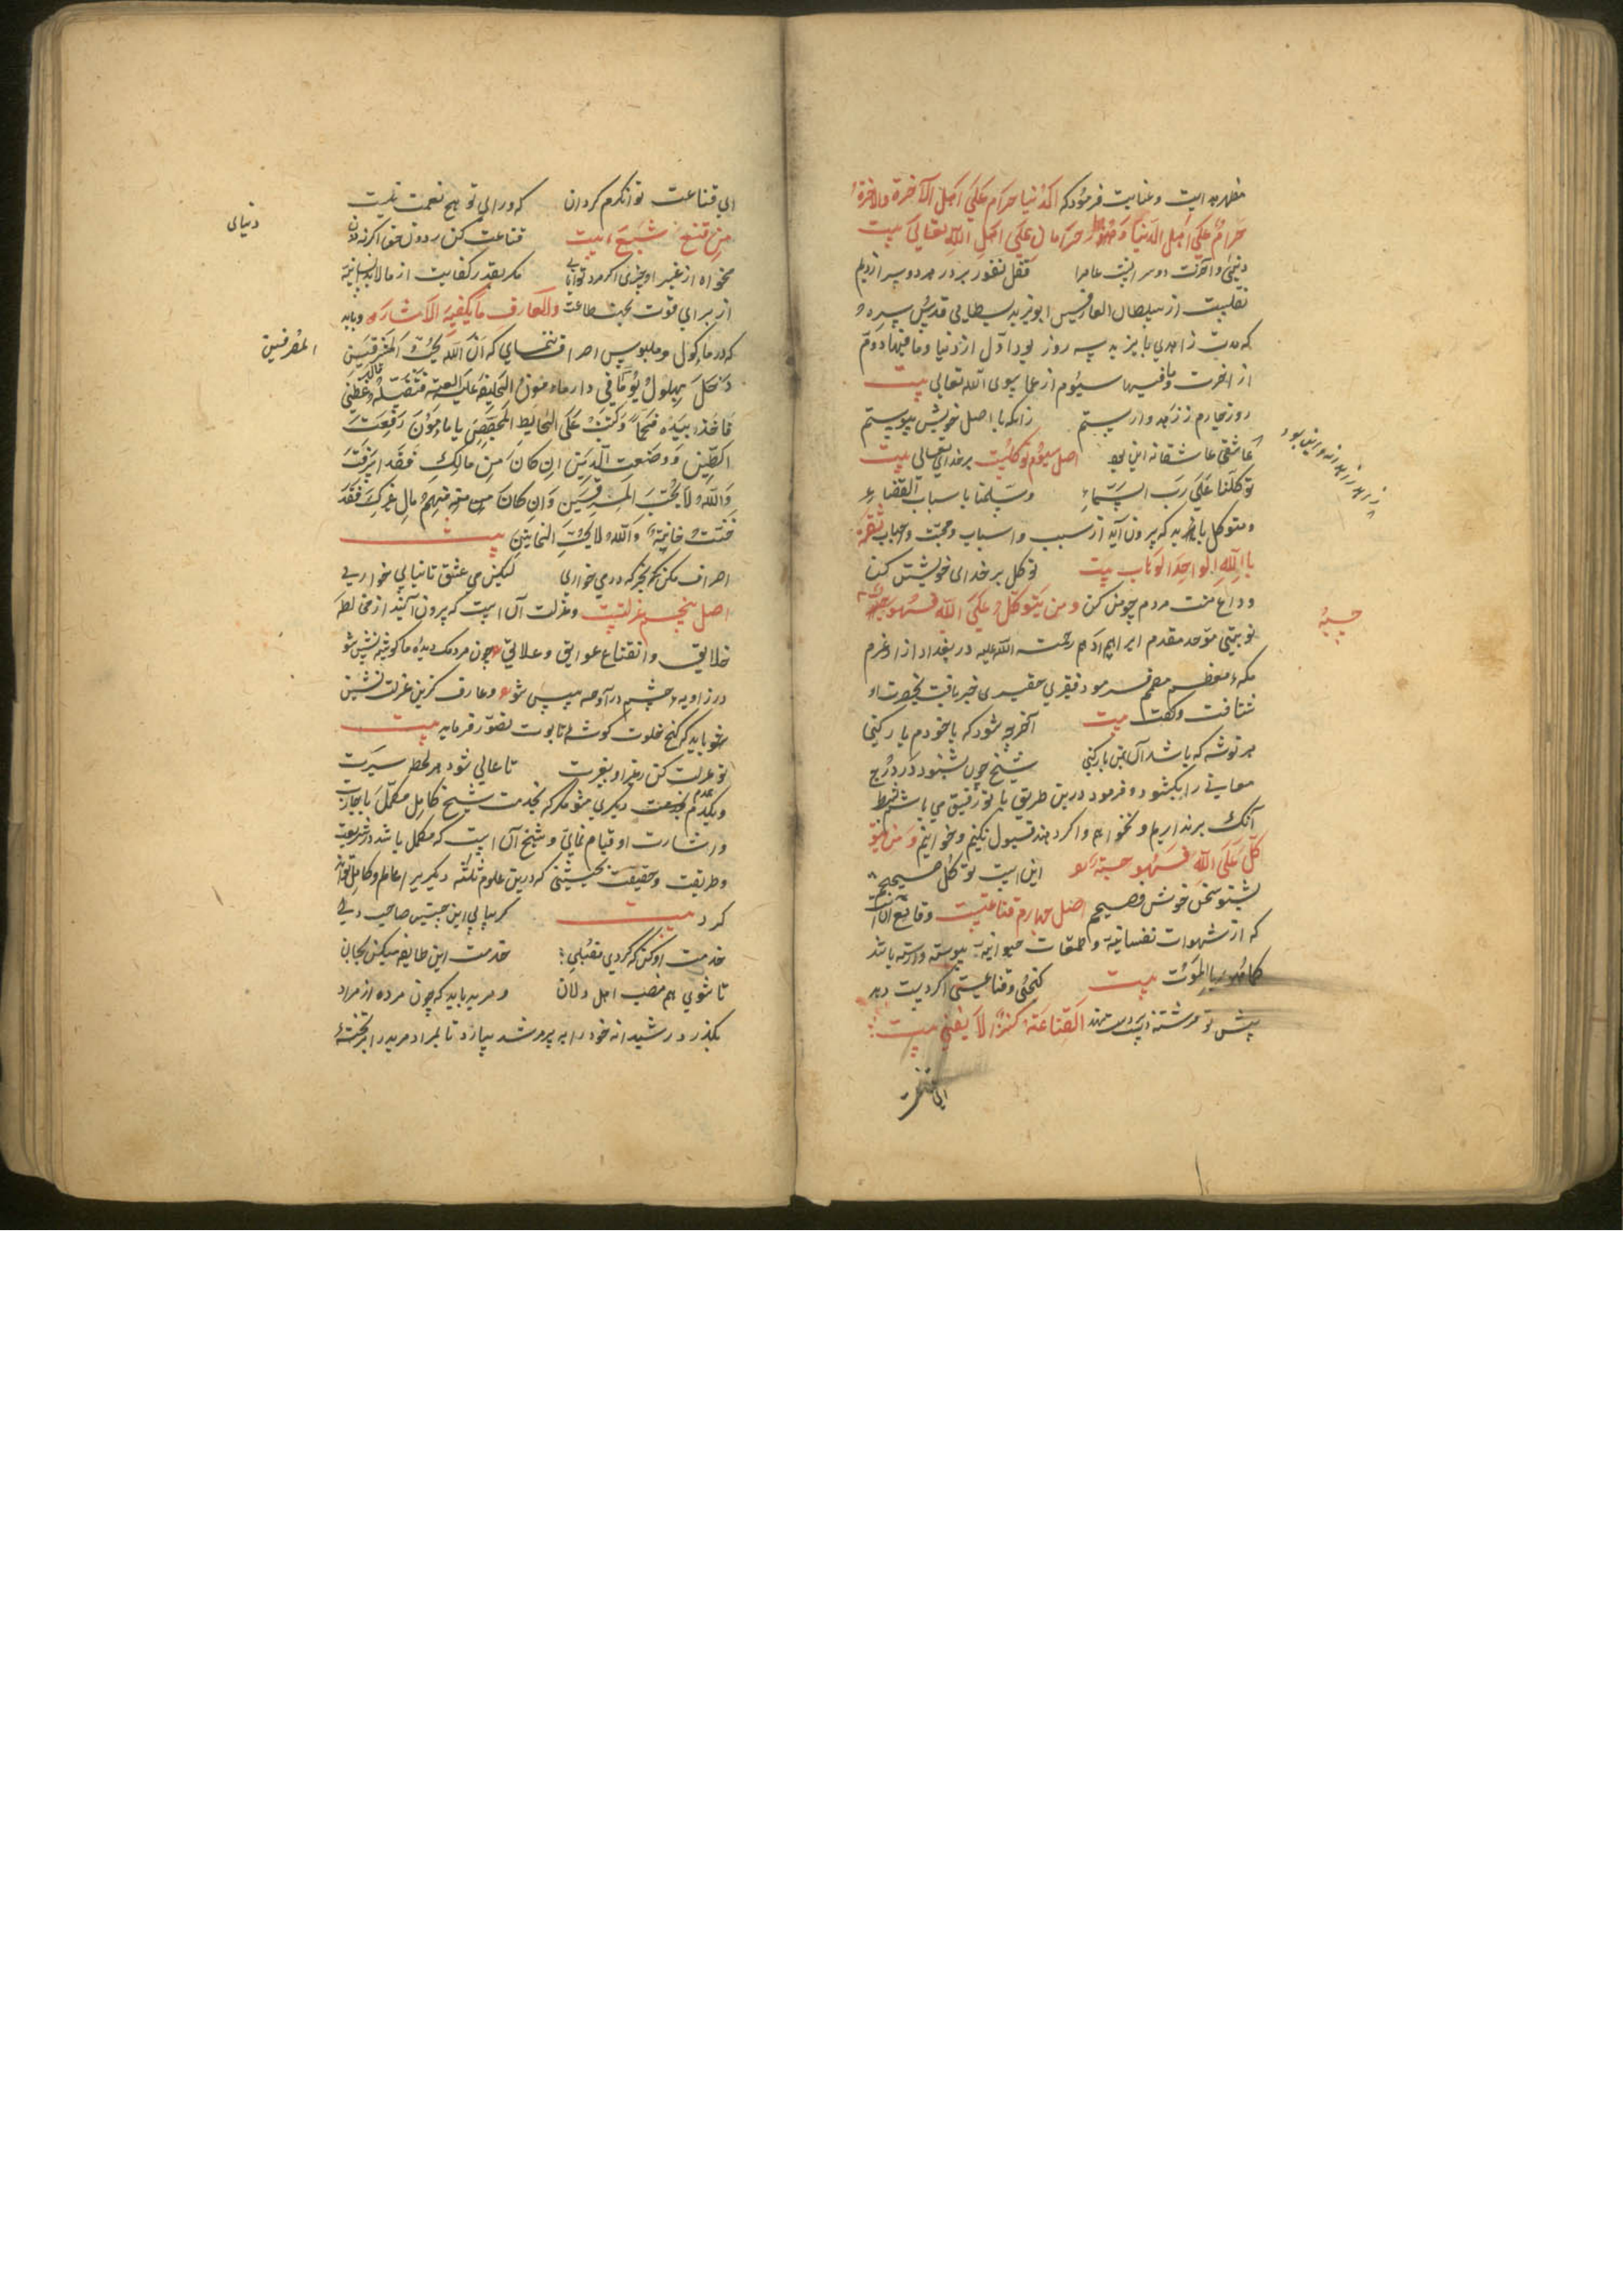 مظهر هدایت و عنایت فرمود که الدنیا حرام علی اهل الآخرة والآخرة
حرام علی اهل الدنیا وهما حرامان علی اهل الله تعالی بیت
دنیی و آخرت دو سرایست قفل نفور بر در هر دو سرا زدیم
نقلست از سلطان العارفین ابویزید بسطامی قدس سره
که مدت زاهدی بایزید سه روز بود اول از دنیا و ما فیها دوم
از آخرت و ما فیها سیوم از ما سوی الله تعالی بیت
روز چهارم ز زهد وا رستم زانکه با اصل خویش پیوستم
عاشقی عاشقانه این بود اصل سیوم توکلست بر خدای تعالی بیت
توکلنا علی رب السماء وسلمنا باسباب القضاء
ومتوکل باید که بیرون آید از سبب واسباب ومحبت واحباب ثقة
باالله الواحد الوهاب بیت توکل بر خدای خویشتن کن
وداع منت مردم چو من کن ومن یتوکل علی الله فهو حسبه
نوبتی موحد مقدم ابراهیم ادهم رحمت الله علیه در بغداد از او عزم
مکه معظم مصمم فرمود فقیری حقیری خبر یافت بحضرت او
شتافت وگفت بیت آخر چه شود که با خودم یار کنی
هر توشه که باشد آن بمن بار کنی شیخ چون بشنود در درج
معانی را بکشود و فرمود درین طریق با تو رفیق می باشم بشرط
آنک بر نداریم و نخواهیم واگر دهند قبول نکنیم و نخواهیم ومن یتو
کل علی الله فهو حسبه این است توکل صحیح
بشنو سخن خوش فصیح اصل چهارم قناعتست وقانع آنست
که از شهوات نفسانیه و طمعات حیوانیه پیوسته وارسته باشد
کما هو بالموت بیت کنجی وقناعیتی اگر دست دهد
پیش تو فرشته دست بر دست نهد القناعة کنز لا یفنی بیت
ای قناعت
حسبه
ای قناعت توانگرم گردان که ورای تو هیچ نعمت نیست
من قنع شبع بیت قناعت کن ز دونِ حق اگر نه دون
دنیای
مخواه از غیر او چیزی اگر مرد توانایی مگر بقدر کفایت از مالابد انسانیه
از برای قوت بجهت طاعت والعارف ما یکفیه الاشاره وباید
که در ماکول وملبوس اسراف ننمایی که ان الله لا یحب المسرفین
المسرفین
دخل بهلول یوما فی دار مامون الخلیفه علیه اللعنه
فاخذ بیده فحماً وکتب علی الحایط المجصص یا مامون رفعت
الطین ووضعت الدین ان کان من مالک فقد اسرفت
والله لا یحب المسرفین وان کان من مال غیرک فقد
خنت خاینة والله لا یحب الخاینین بیت
اسراف مکن بجز که در می خواری لیکن می عشق تا نیابی خواریی
اصل پنجم عزلتست وعزلت آن است که بیرون آیند از مخالطه
خلایق وانقطاع عوایق وعلایق چون مردمک دیده ما گوشه نشین شو
در زاویه چشم درآ وهمه بین شو وعارف گزین عزلت نشین
شو باید که کنج خلوت گوشه تابوت تصور فرماید بیت
تو عزلت کن ز غیر او بغیرت تا عالی شود هر لحظه سیرت
ویکدم بخدمت دیگری مشو مگر که بخدمت شیخ کامل مکمل
واشارت او قیام نمایی وشیخ آن است که مکمل باشد در شریعت
وطریقت وحقیقت بحیثیتی که درین علوم ثلثه دیگر را عالم وکامل تواند
کرد بیت گر بیابی این چنین صاحب دلی
خدمت او کن که گردی مقبلی خدمت این طایفه میکن بجان
تا شوی هم منصب اهل دلان ومرید باید که چون مرده از مراد
بگذرد رشیدانه خود را به پیر مرشد سپارد تا بمراد مرید را بر تخته